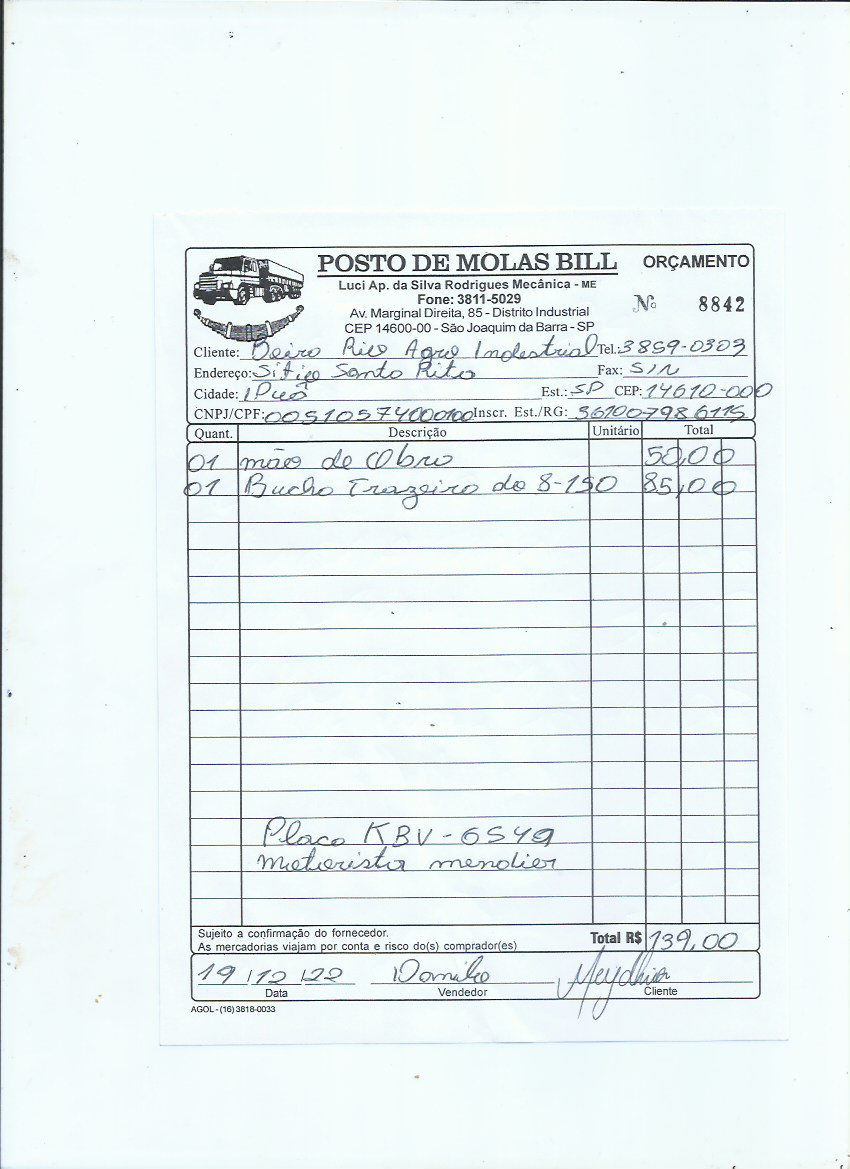 POSTO DE MOLAS BILL
ORÇAMENTO
Luci Ap. da Silva Rodrigues Mecânica - ME
Fone: 3811-5029
Nº 8842
Av. Marginal Direita, 85 - Distrito Industrial
CEP 14600-00 - São Joaquim da Barra - SP
Cliente: Beira Rio Agro Indestrial Tel.: 3859-0303
Endereço: Sítigo Santo Rita Fax: S/N
Cidade: IPuã Est.: SP CEP: 14610-000
CNPJ/CPF: 00510574000100 Inscr. Est./RG: 361007986115
Quant. Descrição Unitário Total
01 mão de Obra 50,00
01 Bucha Trazeira do 8-150 85,00
Placa KBV-6549
Motorista
Sujeito a confirmação do fornecedor.
As mercadorias viajam por conta e risco do(s) comprador(es)
Total R$ 139,00
19/12/22 Danilo
Data Vendedor Cliente
AGOL - (16) 3818-0033